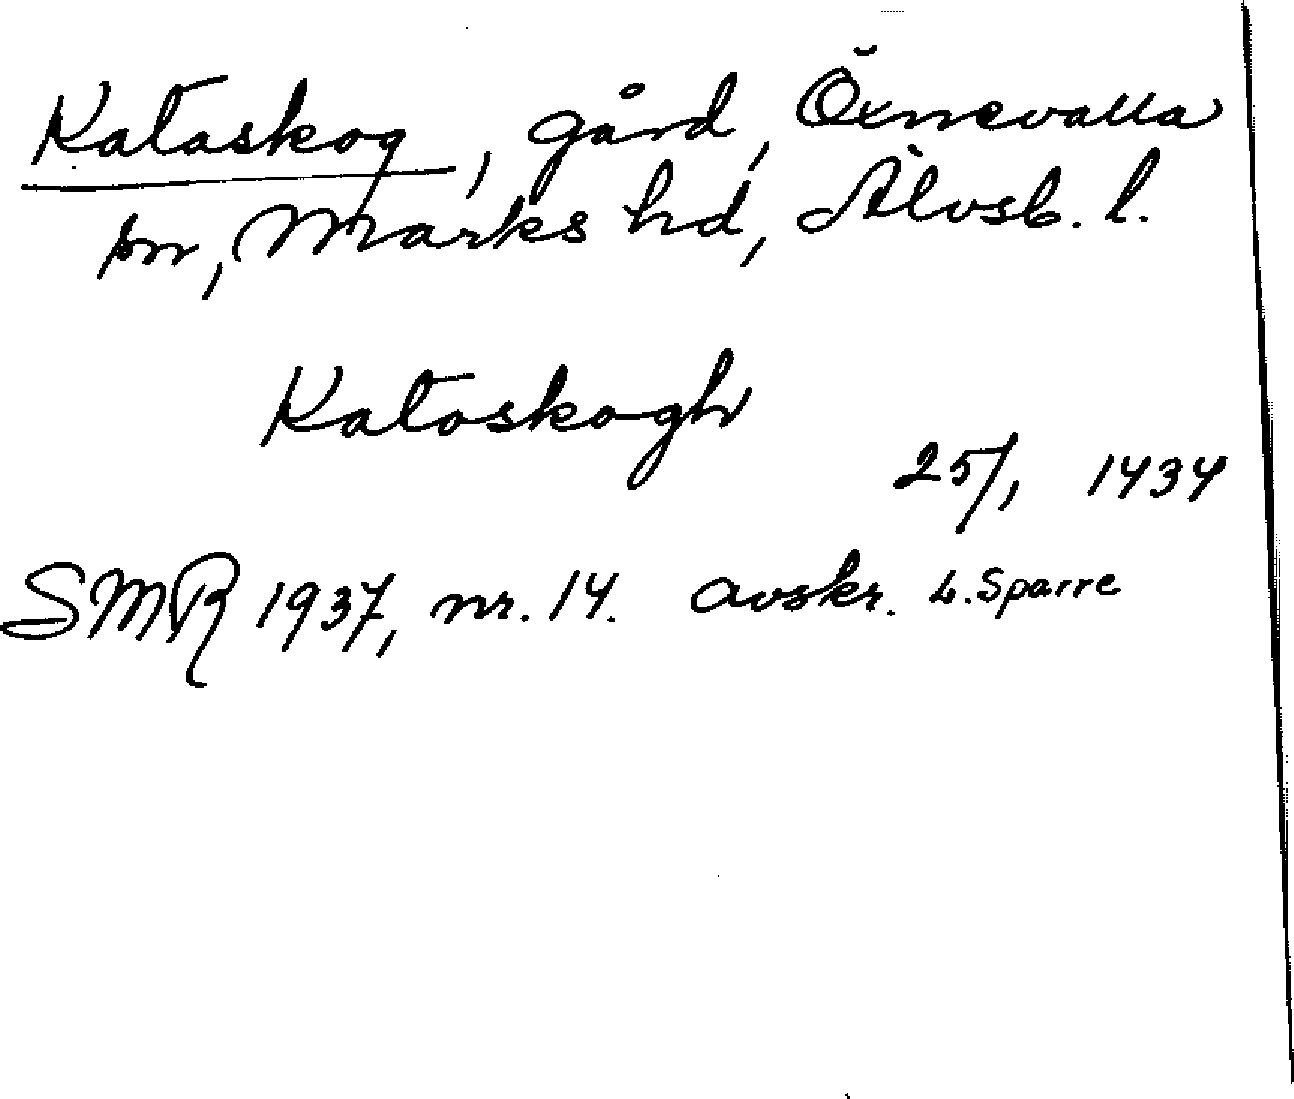 Kataskog, gård, Öxnevalla
sn, Marks hd, Älvsb. l.
Katoskogh
25/1 1434
SMR 1937, nr. 14. avskr. L. Sparre